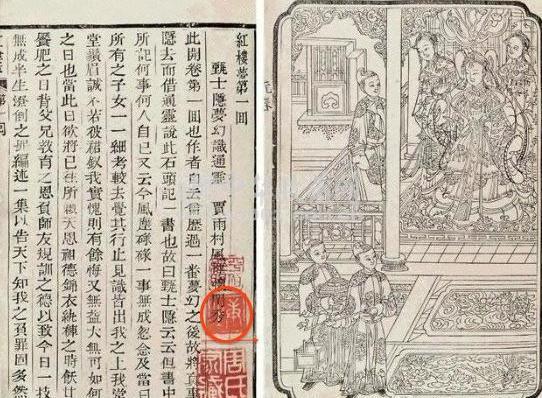 紅樓夢第一回
甄士隱夢幻識通靈 賈雨村風塵
此開卷第一回也作者自云曾歷過一番夢幻之後故將真事
隱去而借通靈說此石頭記一書也故曰甄士隱云云但書中
所記何事何人自己又云今風塵碌碌一事無成忽念及當日
所有之子女一一細考較去覺其行止見識皆出我之上我堂
堂鬚眉誠不若彼裙釵我實愧則有餘悔又無益大無可如何
之日也當此日欲將已往所賴天恩祖德錦衣紈袴之時飫甘
饜肥之日背父兄教育之恩負師友規訓之德以致今日一技
無成半生潦倒之罪編述一集以告天下知我之負罪固多然
第一回
周氏家藏